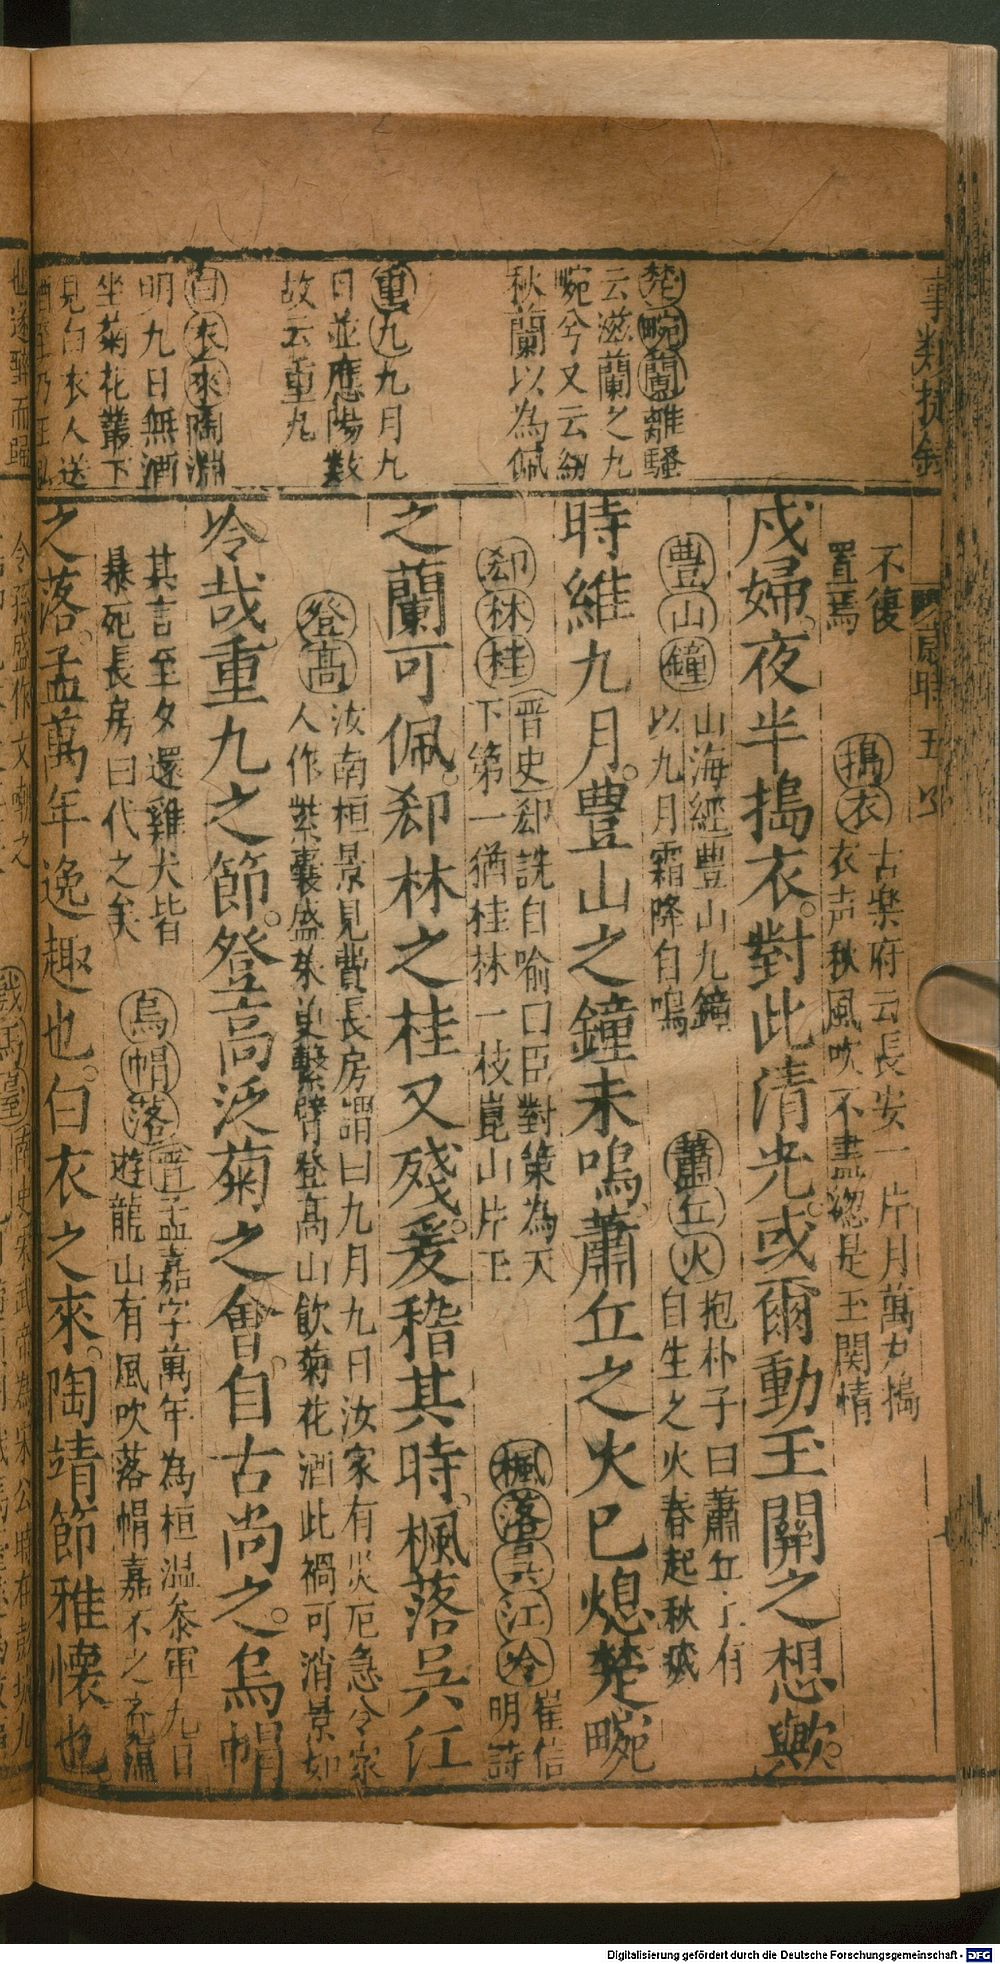 不復
置焉
搗衣 古樂府云長安一片月萬戶搗
衣声秋風吹不盡總是玉関情
戍婦。夜半搗衣。對此清光。或爾動玉關之想歟。
豊山鐘 山海經豊山九鐘
以九月霜降自鳴
蕭丘火 抱朴子曰蕭丘
自生之火春起秋滅
時維九月。豊山之鐘未鳴。蕭丘之火已熄。楚畹
郄林桂 晋史郄詵自喻曰臣對策為天
下第一猶桂林一枝崑山片玉
楓落吳江冷 崔信
明詩
之蘭可佩。郄林之桂又殘。爰稽其時。楓落吳江
登高 汝南桓景見費長房謂曰九月九日汝家有灾厄急令家
人作紫囊盛茱萸繫臂登高山飲菊花酒此禍可消景如
冷哉重九之節。登高泛菊之會。自古尚之。烏帽
其言至夕還雞犬皆
暴死長房曰代之矣
烏帽落 晋孟嘉字萬年為桓温叅軍九日
遊龍山有風吹落帽嘉不之
之落。孟萬年逸趣也。白衣之來。陶靖節雅懐也。
楚畹蘭離騷
云滋蘭之九
畹兮又云紉
秋蘭以為佩
重九九月九
日並應陽数
故云重九
白衣來陶淵
明九日無酒
坐菊花叢下
見白衣人送
酒至乃王弘
也遂醉而歸
令孫盛作文嘲之
戲馬臺 南史宋武帝為宋公時在彭城九
Digitalisierung gefördert durch die Deutsche Forschungsgemeinschaft - DFG